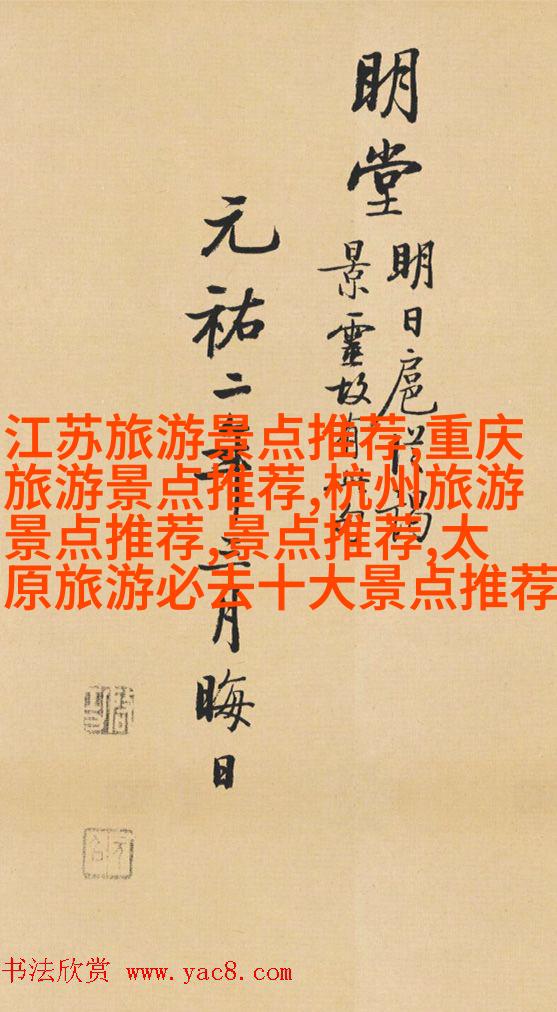 明堂
明日扈從謁
景靈故
元祐二年三月晦日
江苏旅游景点推荐,重庆
旅游景点推荐,杭州旅游
景点推荐,景点推荐,太
原旅游必去十大景点推荐
书法欣赏 www.yac8.com